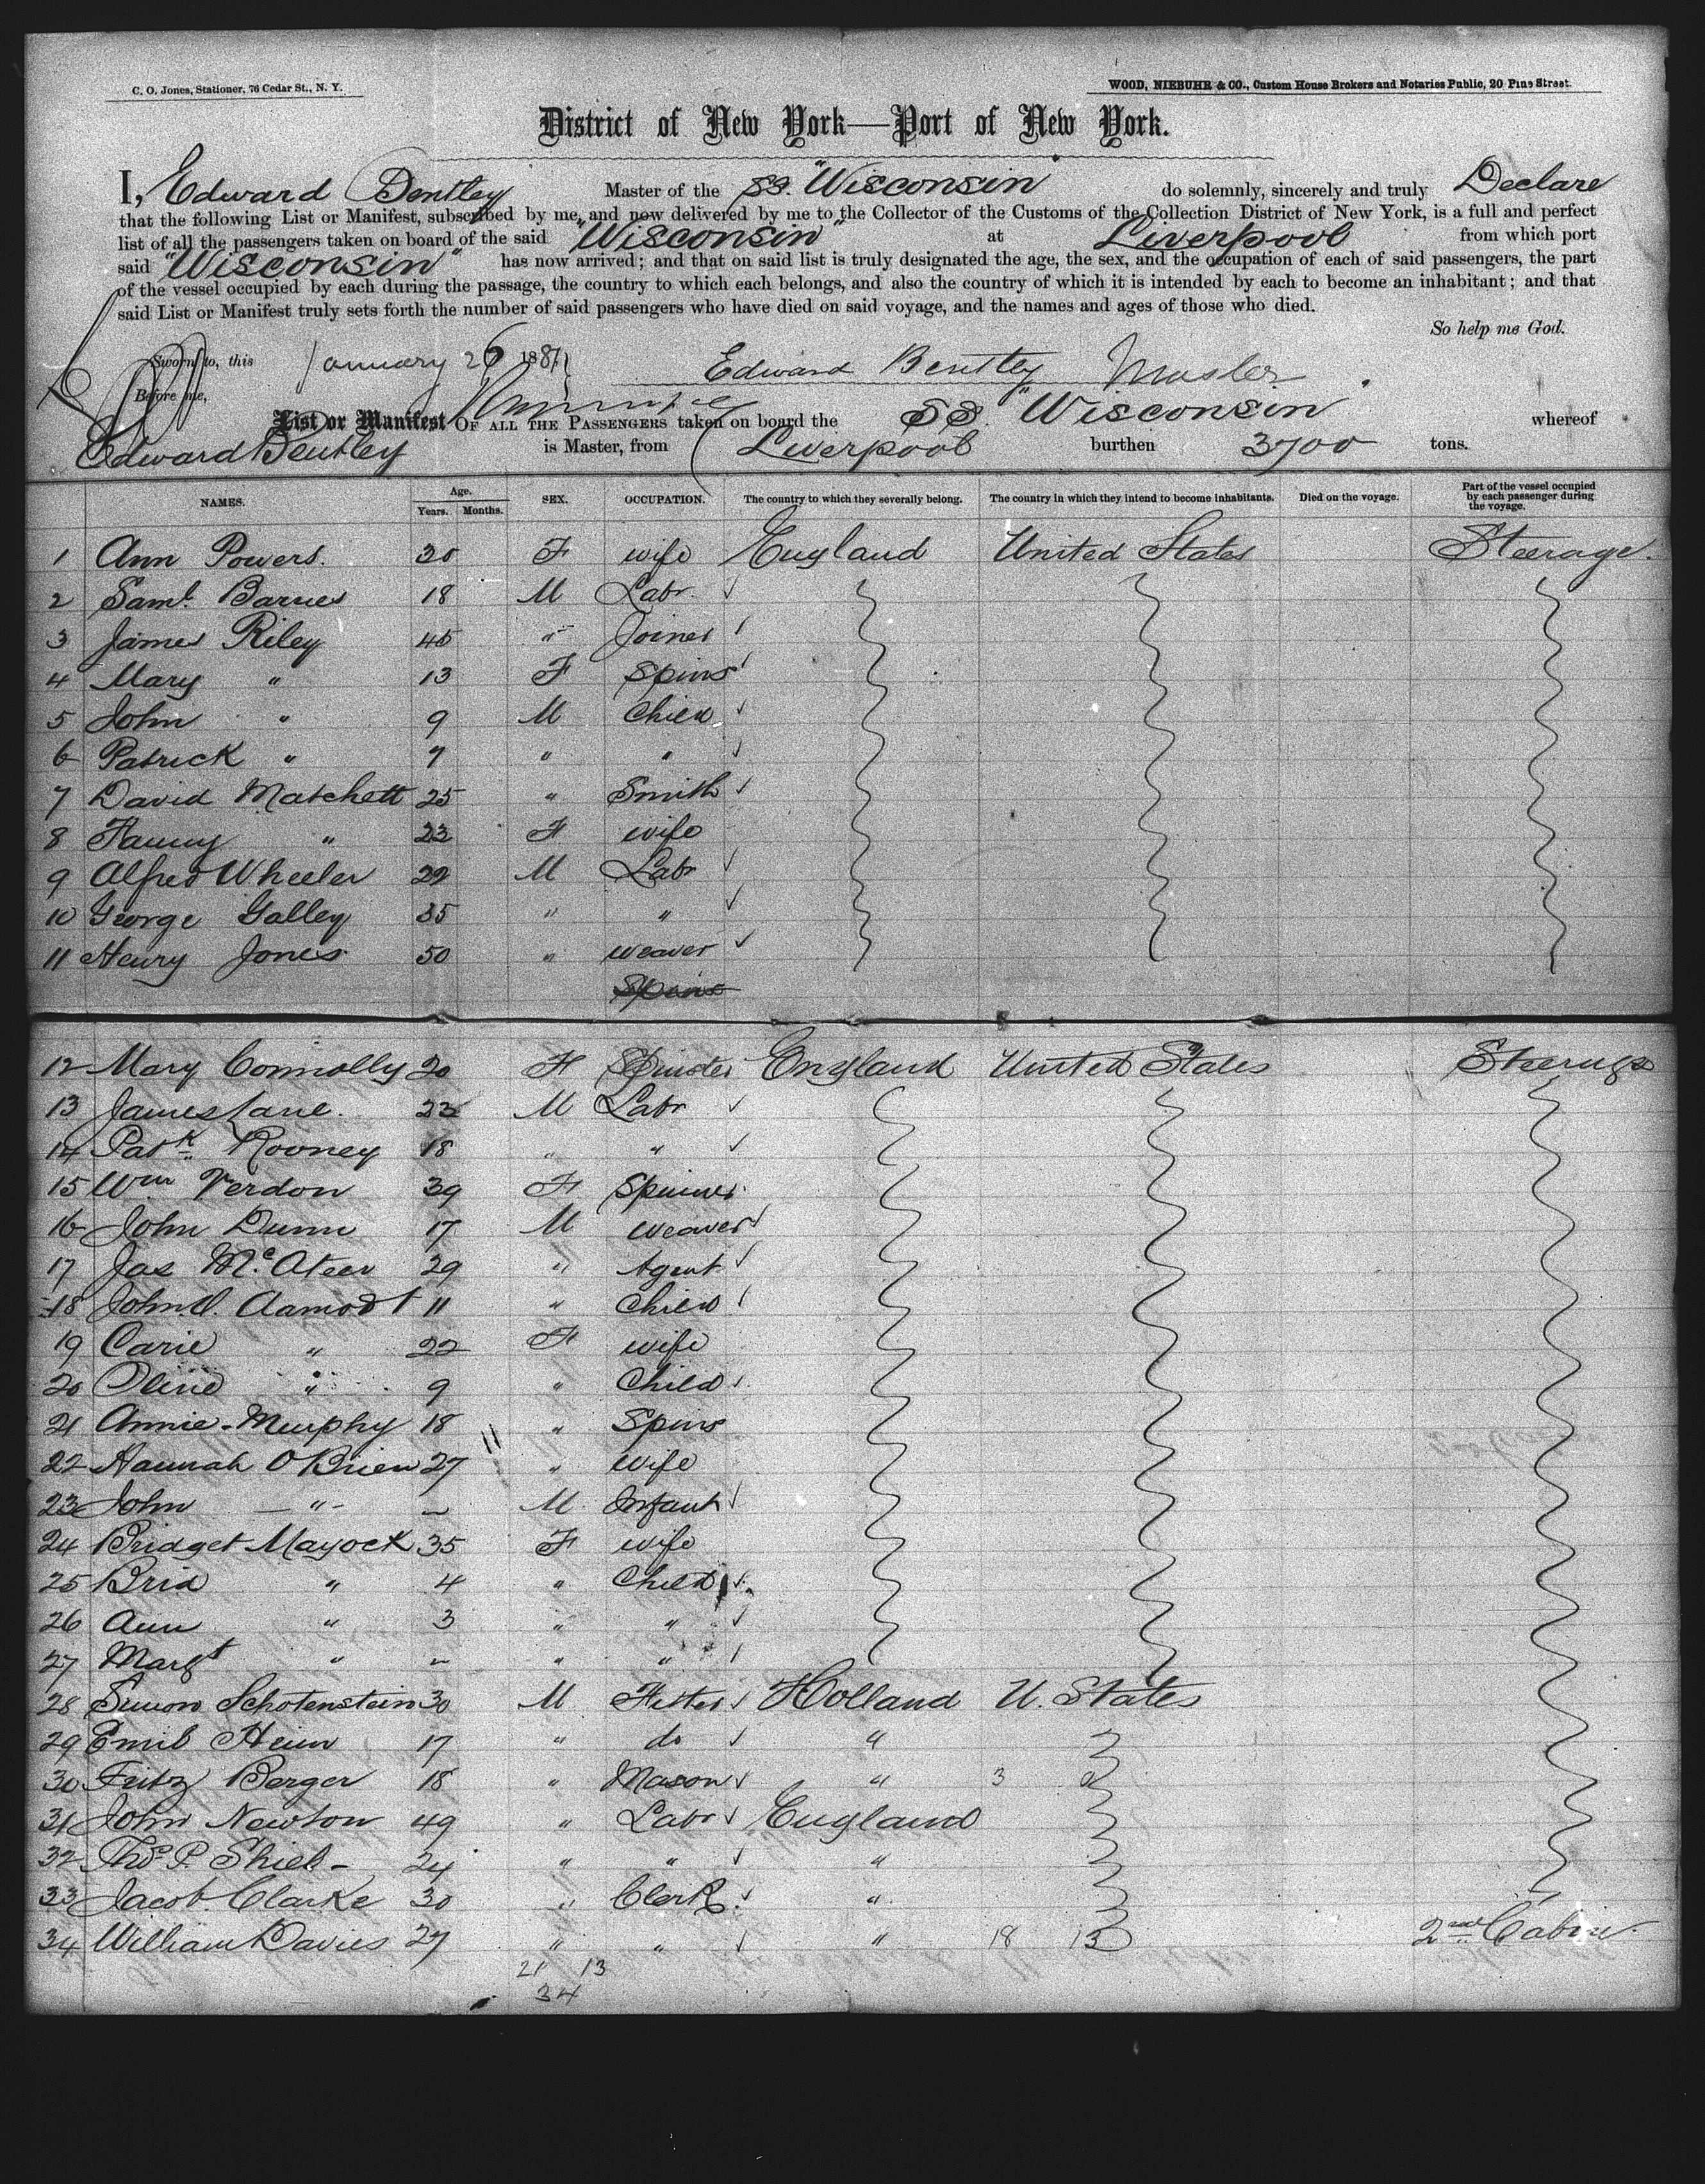 C. O. Jones, Stationer, 76 Cedar St., N. Y.
WOOD, NIEBUHR & CO., Custom House Brokers and Notaries Public, 20 Pine Street.
District of New York—Port of New York.
I, Edward Bentley Master of the SS. "Wisconsin" do solemnly, sincerely and truly Declare
that the following List or Manifest, subscribed by me, and now delivered by me to the Collector of the Customs of the Collection District of New York, is a full and perfect
list of all the passengers taken on board of the said "Wisconsin" at Liverpool from which port
said "Wisconsin" has now arrived; and that on said list is truly designated the age, the sex, and the occupation of each of said passengers, the part
of the vessel occupied by each during the passage, the country to which each belongs, and also the country of which it is intended by each to become an inhabitant; and that
said List or Manifest truly sets forth the number of said passengers who have died on said voyage, and the names and ages of those who died.
So help me God.
Sworn to, this January 26 1887
Edward Bentley Master
Before me,
List or Manifest OF ALL THE PASSENGERS taken on board the SS. "Wisconsin" whereof
Edward Bentley is Master, from Liverpool burthen 3700 tons.
NAMES. Age. Years. Months. SEX. OCCUPATION. The country to which they severally belong. The country in which they intend to become inhabitants. Died on the voyage. Part of the vessel occupied by each passenger during the voyage.
1 Ann Powers. 30 F wife England United States Steerage.
2 Saml. Barnes 18 M Labr. ✓
3 James Riley 45 " Joiner ✓
4 Mary " 13 F Spins ✓
5 John " 9 M Child ✓
6 Patrick " 7 " " ✓
7 David Matchett 25 " Smith ✓
8 Fanny " 23 F wife
9 Alfred Wheeler 29 M Labr ✓
10 George Galley 35 " " ✓
11 Henry Jones 50 " weaver ✓
Spins
12 Mary Connolly 20 F Spinster England United States Steerage
13 James Lane. 23 M Labr ✓
14 Patk. Rooney 18 " " ✓
15 Wm Verdon 39 F Spinner
16 John Dunn 17 M weaver ✓
17 Jas McAteer 29 " Agent ✓
18 John O. Aamodt 11 " Child ✓
19 Carie " 22 F wife
20 Oline " 9 " Child ✓
21 Annie Murphy 18 " Spins
22 Hannah O'Brien 27 " wife
23 John — " - — M. Infant ✓
24 Bridget Mayock 35 F wife
25 Brid " 4 " Child ✓
26 Ann " 3 " " ✓
27 Margt " — " " ✓
28 Simon Schotenstein 30 M Fitter ✓ Holland U. States
29 Emil Heim 17 " do ✓ "
30 Fritz Berger 18 " Mason ✓ " 3
31 John Newton 49 " Labr ✓ England
32 Thos. P. Shiel - 24 " " ✓ "
33 Jacob Clarke 30 " Clerk. ✓ "
34 William Davies 27 " " ✓ " 18 13 2nd Cabin.
21 13
34